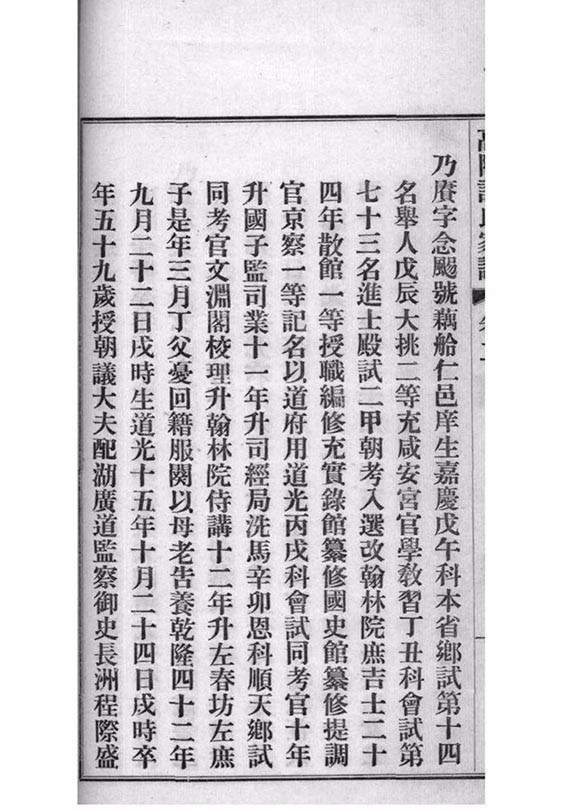 高陽許氏家譜
乃賡字念颺號藕船仁邑庠生嘉慶戊午科本省鄉試第十四
名舉人戊辰大挑二等充咸安宮官學敎習丁丑科會試第
七十三名進士殿試二甲朝考入選改翰林院庶吉士二十
四年散館一等授職編修充實錄館纂修國史館纂修提調
官京察一等記名以道府用道光丙戌科會試同考官十年
升國子監司業十一年升司經局洗馬辛卯恩科順天鄉試
同考官文淵閣校理升翰林院侍講十二年升左春坊左庶
子是年三月丁父憂回籍服闋以母老告養乾隆四十二年
九月二十二日戌時生道光十五年十月二十四日戌時卒
年五十九歲授朝議大夫配湖廣道監察御史長洲程際盛